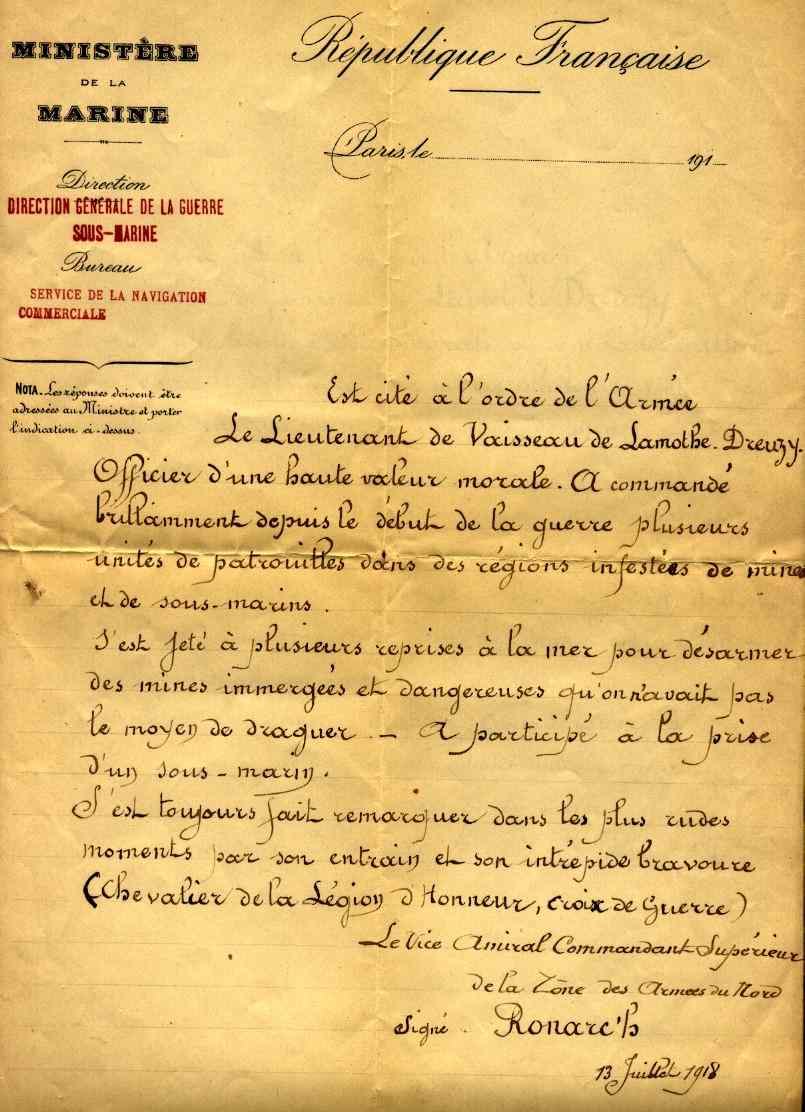 MINISTÈRE
DE LA
MARINE
République Française
Paris, le 191
Direction
DIRECTION GÉNÉRALE DE LA GUERRE
SOUS-MARINE
Bureau
SERVICE DE LA NAVIGATION
COMMERCIALE
NOTA. Les réponses doivent être
adressées au Ministre et porter
l'indication ci-dessus.
Est cité à l'ordre de l'Armée
Le Lieutenant de Vaisseau de Lamothe-Dreuzy.
Officier d'une haute valeur morale. A commandé
brillamment depuis le début de la guerre plusieurs
unités de patrouilles dans des régions infestées de mines
et de sous-marins.
S'est jeté à plusieurs reprises à la mer pour désarmer
des mines immergées et dangereuses qu'on n'avait pas
le moyen de draguer. - A participé à la prise
d'un sous-marin.
S'est toujours fait remarquer dans les plus rudes
moments par son entrain et son intrépide bravoure
(Chevalier de la Légion d'Honneur, croix de Guerre)
Le Vice Amiral Commandant Supérieur
de la Zône des Armées du Nord
Signé. Ronarc'h
13 Juillet 1918